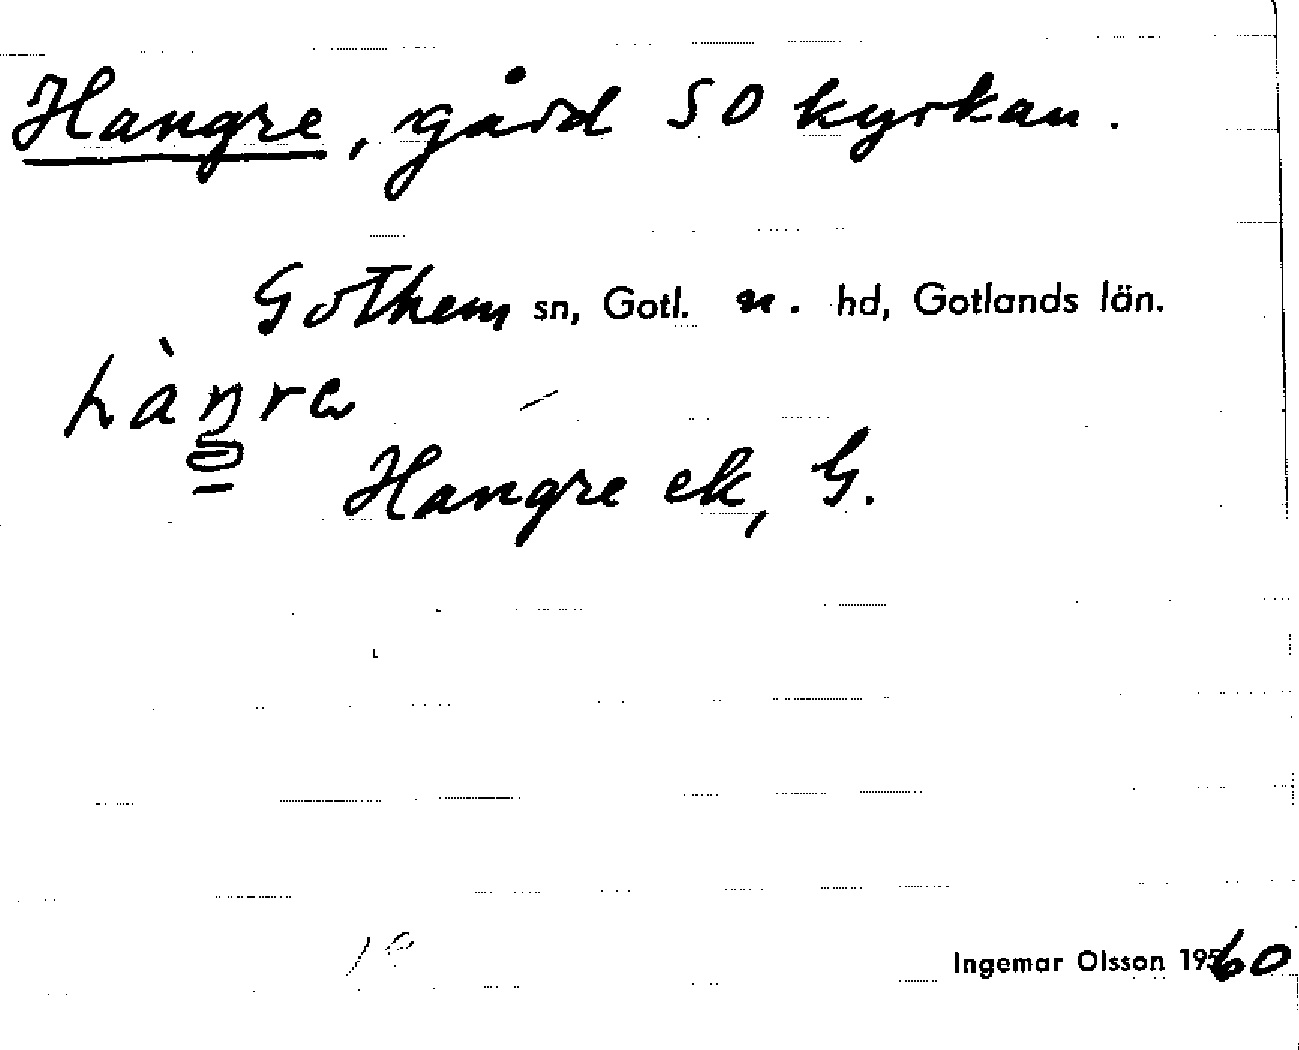 Hangre, gård SO kyrkan.
Gothem sn, Gotl. n. hd, Gotlands län.
hàŋre
Hangre ek, G.
Ingemar Olsson 1960